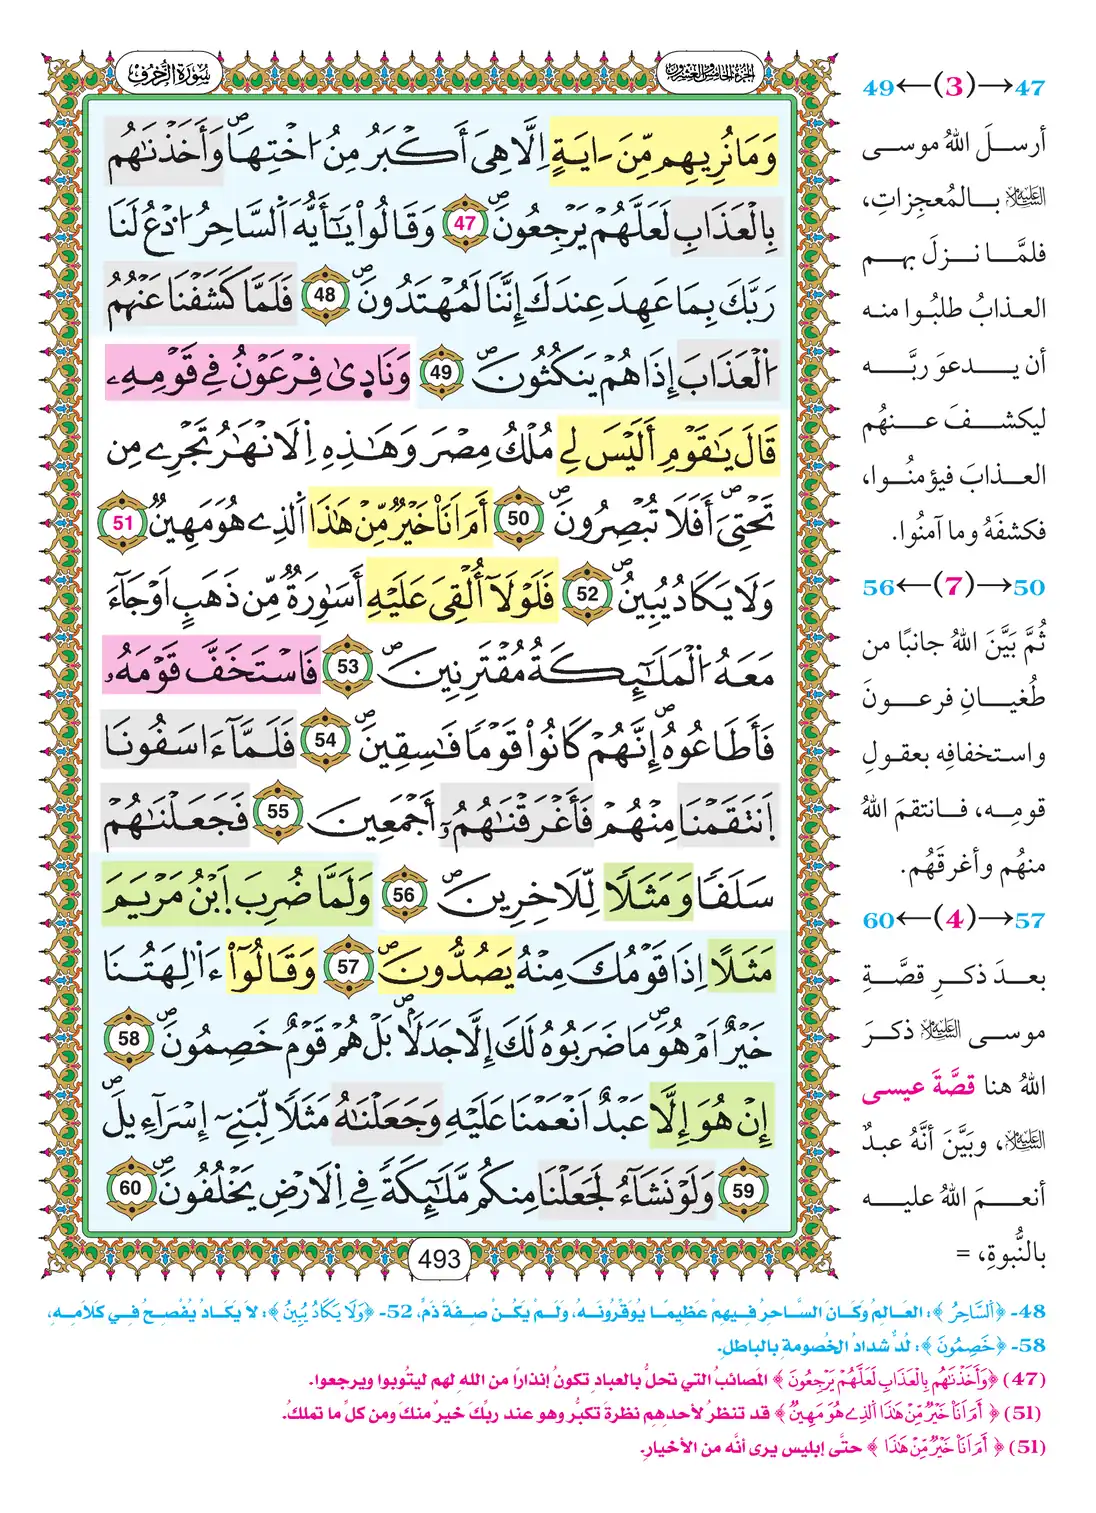 سُورَةُ الزُّخْرُفِ
الجزء الخامس والعشرون
وَمَا نُرِيهِم مِّنَ ايَةٍ اِلَّا هِيَ أَكْبَرُ مِنُ اخْتِهَاۖ وَأَخَذْنَٰهُم
بِالْعَذَابِ لَعَلَّهُمْ يَرْجِعُونَۖ 47 وَقَالُواْ يَٰٓأَيُّهَ اَ۬لسَّاحِرُ ادْعُ لَنَا
رَبَّكَ بِمَا عَهِدَ عِندَكَ إِنَّنَا لَمُهْتَدُونَۖ 48 فَلَمَّا كَشَفْنَا عَنْهُمُ
اُ۬لْعَذَابَ إِذَا هُمْ يَنكُثُونَۖ 49 وَنَادِىٰ فِرْعَوْنُ فِي قَوْمِهِۦ
قَالَ يَٰقَوْمِ أَلَيْسَ لِي مُلْكُ مِصْرَ وَهَٰذِهِ اِ۬لَانْهَٰرُ تَجْرِے مِن
تَحْتِيَۖ أَفَلَا تُبْصِرُونَۖ 50 أَمَ اَنَا خَيْرٌ مِّنْ هَٰذَا اَ۬لذِے هُوَ مَهِينٌ 51
وَلَا يَكَادُ يُبِينُۖ 52 فَلَوْلَآ أُلْقِيَ عَلَيْهِ أَسَٰوِرَةٌ مِّن ذَهَبٍ اَوْ جَآءَ
مَعَهُ اُ۬لْمَلَٰٓئِكَةُ مُقْتَرِنِينَۖ 53 فَاسْتَخَفَّ قَوْمَهُۥ
فَأَطَاعُوهُۖ إِنَّهُمْ كَانُواْ قَوْمًا فَٰسِقِينَۖ 54 فَلَمَّآ ءَاسَفُونَا
اَ۪نتَقَمْنَا مِنْهُمْ فَأَغْرَقْنَٰهُمُۥٓ أَجْمَعِينَ 55 فَجَعَلْنَٰهُمْ
سَلَفًا وَمَثَلًا لِّلَاخِرِينَۖ 56 وَلَمَّا ضُرِبَ اَ۪بْنُ مَرْيَمَ
مَثَلًا اِذَا قَوْمُكَ مِنْهُ يَصُدُّونَۖ 57 وَقَالُوٓاْ ءَاٰ۬لِهَتُنَا
خَيْرٌ اَمْ هُوَۖ مَا ضَرَبُوهُ لَكَ إِلَّا جَدَلًاۖ بَلْ هُمْ قَوْمٌ خَصِمُونَۖ 58
إِنْ هُوَ إِلَّا عَبْدٌ اَنْعَمْنَا عَلَيْهِ وَجَعَلْنَٰهُ مَثَلًا لِّبَنِےٓ إِسْرَآءِيلَۖ
59 وَلَوْ نَشَآءُ لَجَعَلْنَا مِنكُم مَّلَٰٓئِكَةً فِے اِ۬لَارْضِ يَخْلُفُونَۖ 60
493
47→(3)←49
أرسلَ اللهُ موسى
عليه السلام بالمُعجِزاتِ،
فلمَّا نزلَ بهم
العذابُ طلبُوا منه
أن يدعوَ ربَّه
ليكشفَ عنهُم
العذابَ فيؤمنُوا،
فكشفَهُ وما آمنُوا.
50→(7)←56
ثُمَّ بَيَّنَ اللهُ جانبًا من
طُغيانِ فرعونَ
واستخفافِه بعقولِ
قومِه، فانتقمَ اللهُ
منهُم وأغرقَهُم.
57→(4)←60
بعدَ ذكرِ قصَّةِ
موسى عليه السلام ذكرَ
اللهُ هنا قصَّةَ عيسى
عليه السلام، وبَيَّنَ أنَّهُ عبدٌ
أنعمَ اللهُ عليه
بالنُّبوةِ، =
48- ﴿اَ۬لسَّاحِرُ﴾: العَالِمُ وَكَانَ السَّاحِرُ فِيهِمْ عَظِيمًا يُوَقِّرُونَهُ، وَلَمْ يَكُنْ صِفَةَ ذَمٍّ، 52- ﴿وَلَا يَكَادُ يُبِينُ﴾: لاَ يَكَادُ يُفْصِحُ فِي كَلاَمِهِ،
58- ﴿خَصِمُونَ﴾: لُدٌّ شدادُ الخُصومةِ بالباطلِ.
(47) ﴿وَأَخَذْنَٰهُم بِالْعَذَابِ لَعَلَّهُمْ يَرْجِعُونَ﴾ المصائبُ التي تحلُّ بالعبادِ تكونُ إنذاراً من اللهِ لهم ليتُوبوا ويرجعوا.
(51) ﴿أَمَ اَنَا خَيْرٌ مِّنْ هَٰذَا اَ۬لذِے هُوَ مَهِينٌ﴾ قد تنظرُ لأحدِهم نظرةَ تكبُّر وهو عند ربِّكَ خيرٌ منكَ ومن كلِّ ما تملكُ.
(51) ﴿أَمَ اَنَا خَيْرٌ مِّنْ هَٰذَا﴾ حتَّى إبليس يرى أنَّه من الأخيارِ.